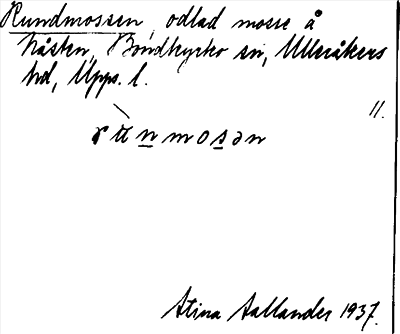 Rundmossen, odlad mosse å
Nåsten, Bondkyrko sn, Ulleråkers
hd, Upps. l.
11.
rùnmosən
Stina Aallander 1937.